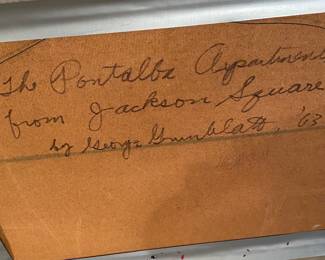 The Pontalba Appartment
from Jackson Square
by George Grunblatt, '63